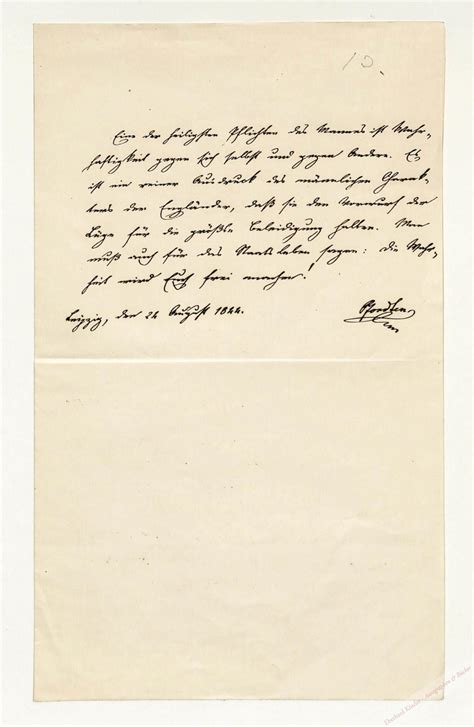 10.
Eine der heiligsten Pflichten des Mannes ist Wahr-
haftigkeit gegen sich selbst und gegen Andere. Es
ist ein reiner Ausdruck des männlichen Charak-
ters der Engländer, daß sie den Vorwurf der
Lüge für die größte Beleidigung halten. Man
muß auch für das Staatsleben sagen: die Wahr-
heit wird Euch frei machen!
Leipzig, den 24 August 1844.
Pfordten
Eberhard Köstler Autographen & Bücher